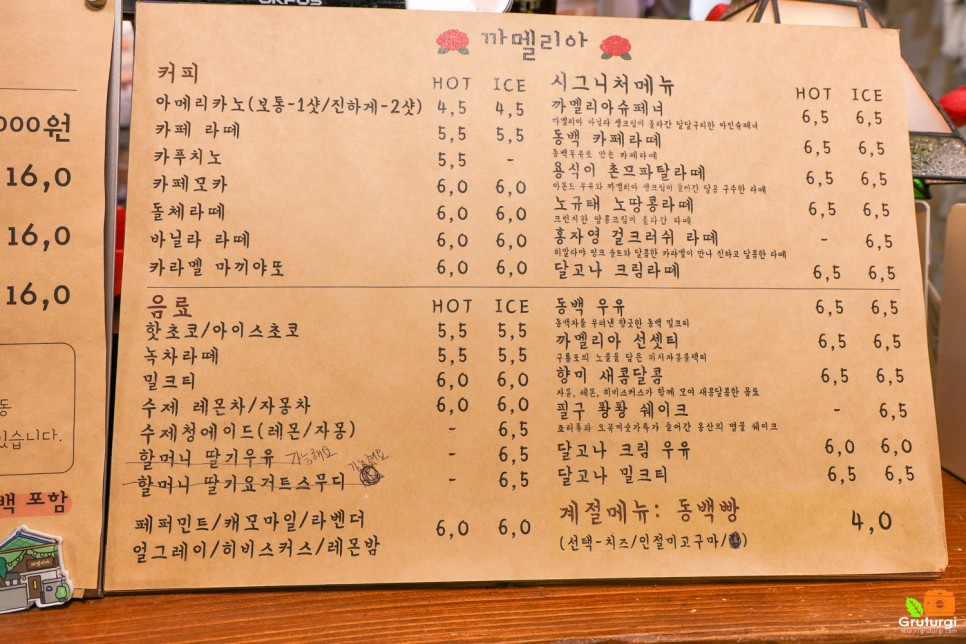 OKPOS
000원
16,0
16,0
16,0
동
있습니다.
백 포함
까멜리아
까멜리아
커피 HOT ICE
아메리카노(보통-1샷/진하게-2샷) 4,5 4,5
카페 라떼 5,5 5,5
카푸치노 5,5 -
카페모카 6,0 6,0
돌체라떼 6,0 6,0
바닐라 라떼 6,0 6,0
카라멜 마끼야또 6,0 6,0
음료 HOT ICE
핫초코/아이스초코 5,5 5,5
녹차라떼 5,5 5,5
밀크티 6,0 6,0
수제 레몬차/자몽차 6,0 6,0
수제청에이드(레몬/자몽) - 6,5
할머니 딸기우유 가능해요 - 6,5
할머니 딸기요거트스무디 가능해요 - 6,5
페퍼민트/캐모마일/라벤더
얼그레이/히비스커스/레몬밤 6,0 6,0
시그니처메뉴 HOT ICE
까멜리아슈페너 6,5 6,5
까멜리아 바닐라 생크림이 올라간 달달구리한 아인슈페너
동백 카페라떼 6,5 6,5
동백우유로 만든 카페라떼
용식이 촌므파탈라떼 6,5 6,5
아몬드 우유와 까멜리아 생크림이 들어간 달콤 구수한 라떼
노규태 노땅콩라떼 6,5 6,5
크런치한 땅콩크림이 올라간 라떼
홍자영 걸크러쉬 라떼 - 6,5
히말라야 핑크 솔트와 달콤한 카라멜이 만나 진하고 달콤한 라떼
달고나 크림라떼 6,5 6,5
동백 우유 6,5 6,5
동백차를 우려낸 향긋한 동백 밀크티
까멜리아 선셋티 6,5 6,5
구룡포의 노을을 담은 피치자몽블랙티
향미 새콤달콤 6,5 6,5
자몽, 레몬, 히비스커스가 함께 모여 새콤달콤한 음료
필구 쾅쾅 쉐이크 - 6,5
죠리퐁과 오곡미숫가루가 들어간 옹산의 명물 쉐이크
달고나 크림 우유 6,0 6,0
달고나 밀크티 6,5 6,5
계절메뉴: 동백빵 4,0
(선택-치즈/인절미고구마/
Gruturgi
http://gruturgi.com